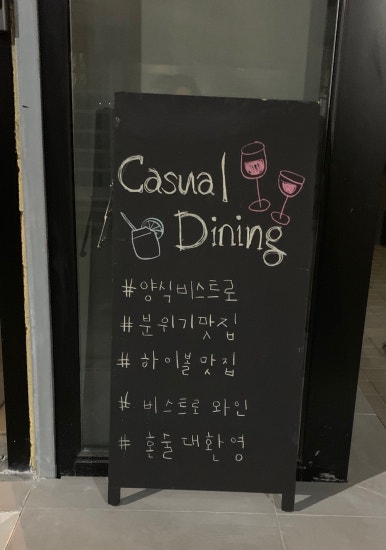 Casual
Dining
#양식비스트로
#분위기맛집
#하이볼맛집
# 비스트로 와인
# 혼술 대환영